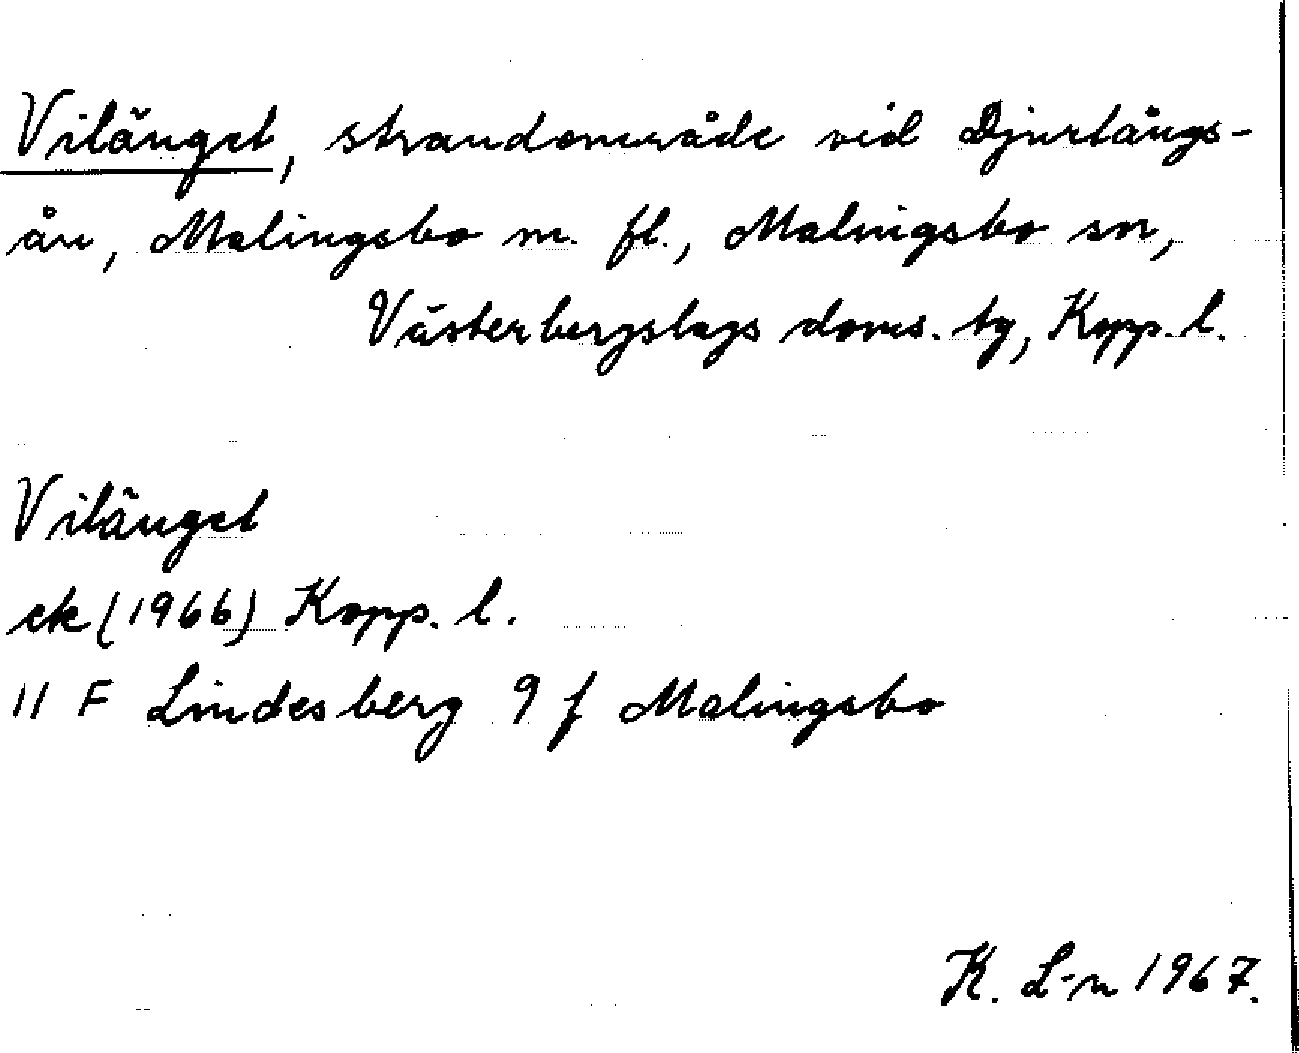 Vilänget, strandområde vid Djurlångs-
ån, Malingsbo m. fl., Malingsbo sn,
Västerbergslags doms. tg, Kopp. l.
Vilänget
ek (1966) Kopp. l.
11 F Lindesberg 9 f Malingsbo
K. L-n 1967.